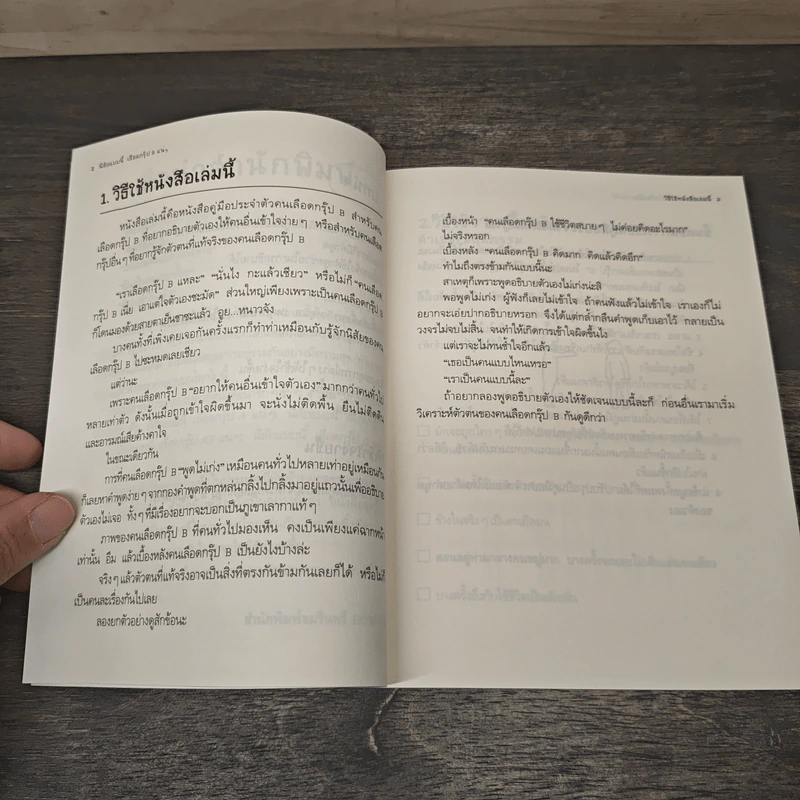 2 นิสัยแบบนี้ เลือดกรุ๊ป B
1. วิธีใช้หนังสือเล่มนี้
หนังสือเล่มนี้คือหนังสือคู่มือประจำตัวคนเลือดกรุ๊ป B สำหรับคน
เลือดกรุ๊ป B ที่อยากอธิบายตัวเองให้คนอื่นเข้าใจง่ายๆ หรือสำหรับคนเลือด
กรุ๊ปอื่นๆ ที่อยากรู้จักตัวตนที่แท้จริงของคนเลือดกรุ๊ป B
"เราเลือดกรุ๊ป B แหละ" "นั่นไง กะแล้วเชียว" หรือไม่ก็ "คนเลือด
กรุ๊ป B เนี่ย เอาแต่ใจตัวเองชะมัด" ส่วนใหญ่เพียงเพราะเป็นคนเลือดกรุ๊ป B
ก็โดนมองด้วยสายตาเย็นชาซะแล้ว อูย...หนาวจัง
บางคนทั้งที่เพิ่งเคยเจอกันครั้งแรกก็ทำท่าเหมือนกับรู้จักนิสัยของคน
เลือดกรุ๊ป B ไปซะหมดเลยเชียว
แต่ว่านะ
เพราะคนเลือดกรุ๊ป B "อยากให้คนอื่นเข้าใจตัวเอง" มากกว่าคนทั่วไป
หลายเท่าตัว ดังนั้นเมื่อถูกเข้าใจผิดขึ้นมา จะนั่งไม่ติดพื้น ยืนไม่ติดดิน
และอารมณ์เสียค้างคาใจ
ในขณะเดียวกัน
การที่คนเลือดกรุ๊ป B "พูดไม่เก่ง" เหมือนคนทั่วไปหลายเท่าอยู่เหมือนกัน
ก็เลยหาคำพูดง่ายๆ จากกองคำพูดที่ตกหล่นกลิ้งไปกลิ้งมาอยู่แถวนั้นเพื่ออธิบาย
ตัวเองไม่เจอ ทั้งๆ ที่มีเรื่องอยากจะบอกเป็นภูเขาเลากาแท้ๆ
ภาพของคนเลือดกรุ๊ป B ที่คนทั่วไปมองเห็น คงเป็นเพียงแค่ฉากหน้า
เท่านั้น อืม แล้วเบื้องหลังคนเลือดกรุ๊ป B เป็นยังไงบ้างล่ะ
จริงๆ แล้วตัวตนที่แท้จริงอาจเป็นสิ่งที่ตรงกันข้ามกันเลยก็ได้ หรือไม่ก็
เป็นคนละเรื่องกันไปเลย
ลองยกตัวอย่างดูสักข้อนะ
วิธีใช้หนังสือเล่มนี้ 3
เบื้องหน้า "คนเลือดกรุ๊ป B ใช้ชีวิตสบายๆ ไม่ค่อยคิดอะไรมาก"
ไม่จริงหรอก
เบื้องหลัง "คนเลือดกรุ๊ป B คิดมาก คิดแล้วคิดอีก"
ทำไมถึงตรงข้ามกันแบบนี้นะ
สาเหตุก็เพราะพูดอธิบายตัวเองไม่เก่งน่ะสิ
พอพูดไม่เก่ง ผู้ฟังก็เลยไม่เข้าใจ ถ้าคนฟังแล้วไม่เข้าใจ เราเองก็ไม่
อยากจะเอ่ยปากอธิบายหรอก จึงได้แต่กล้ำกลืนคำพูดเก็บเอาไว้ กลายเป็น
วงจรไม่จบไม่สิ้น จนทำให้เกิดการเข้าใจผิดขึ้นไง
แต่เราจะไม่ทนช้ำใจอีกแล้ว
"เธอเป็นคนแบบไหนเหรอ"
"เราเป็นคนแบบนี้ละ"
ถ้าอยากลองพูดอธิบายตัวเองให้ชัดเจนแบบนี้ละก็ ก่อนอื่นเรามาเริ่ม
วิเคราะห์ตัวตนของคนเลือดกรุ๊ป B กันดูดีกว่า